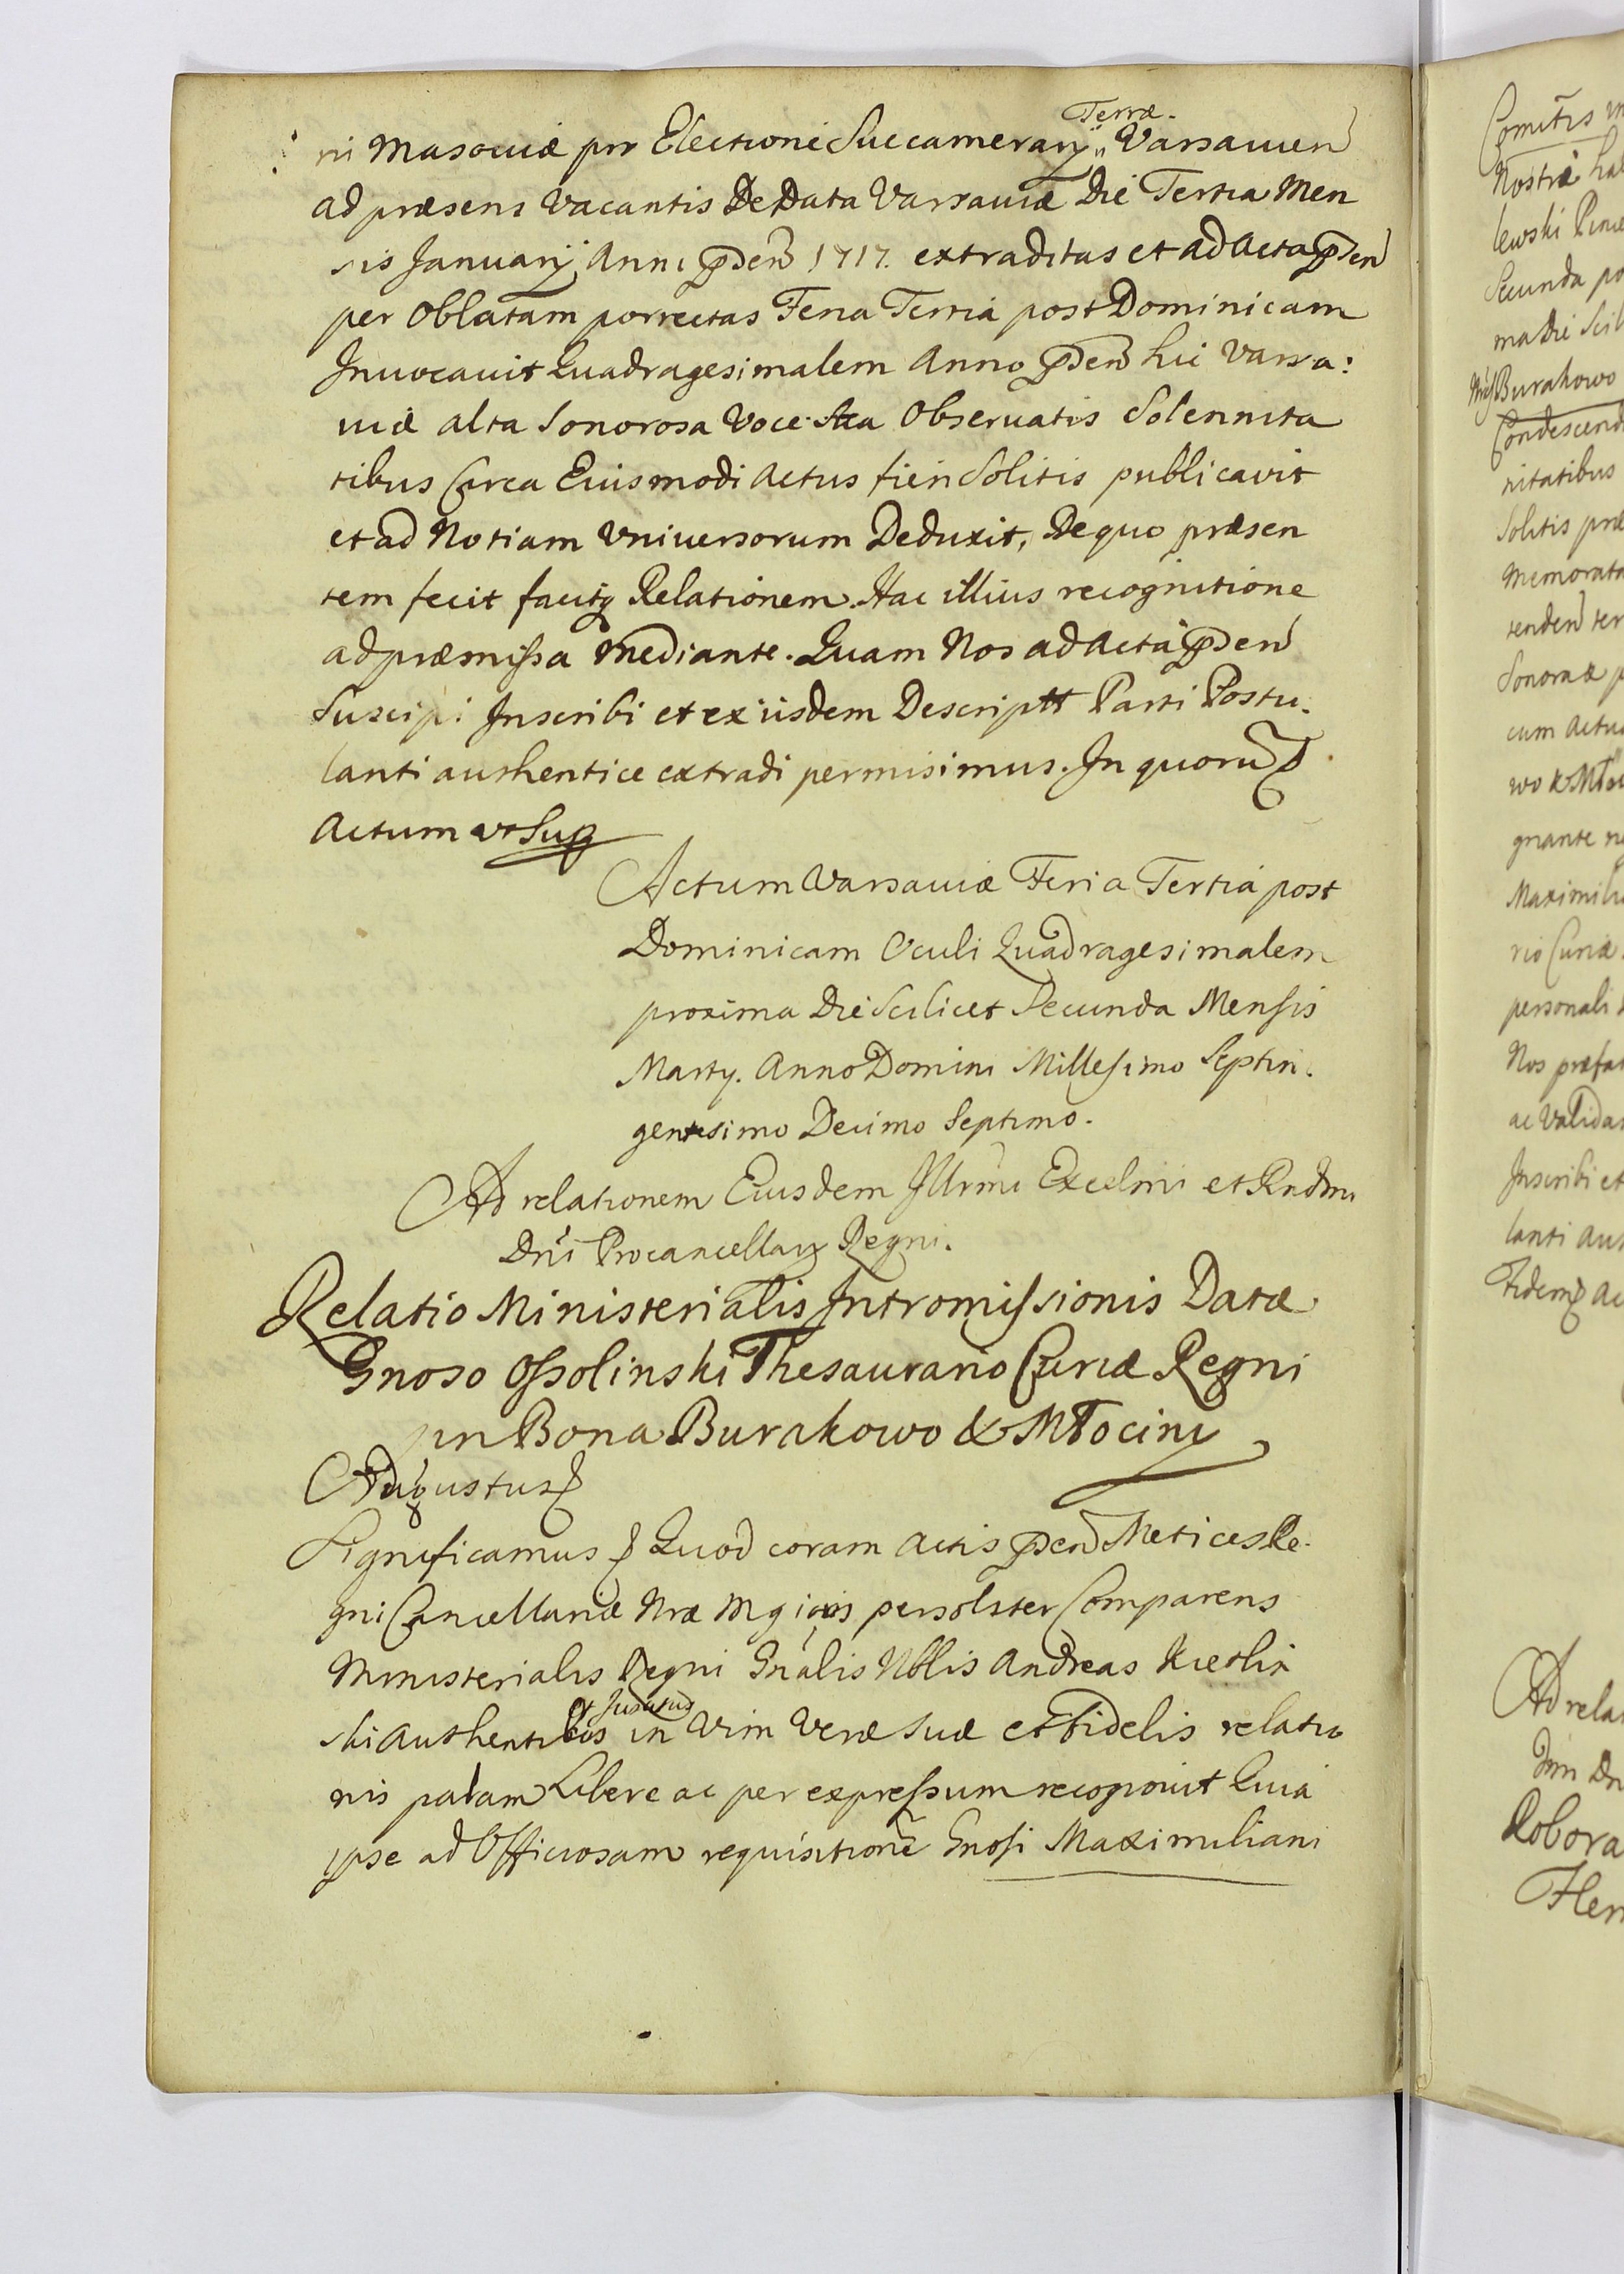 Terræ
ni Masoviæ pro Electione Succamerarij Varsavien
ad præsens Vacantis De Data Varsaviæ Die Tertia Men
sis Januarij Anni pñden 1717. extraditas et ad Acta pñden
per Oblatam porrectas Feria Tertia post Dominicam
Invocavit Quadragesimalem Anno pñden hic Varsa:
viæ alta Sonorosa Voce Observatis Solennita
tibus Circa Eiusmodi Actus fieri Solitis publicavit
et ad Notiam Universorum Deduxit, De quo præsen
tem fecit facitq Relationem. Hac illius recognitione
ad præmissa Mediante. Quam Nos ad Acta pñden
Suscipi Inscribi et ex iisdem Descriptt Parti Postu.
lanti authentice extradi permisimus. In quoru
Actum ut Sup
Actum Varsaviæ Feria Tertia post
Dominicam Oculi Quadragesimalem
proxima Die Scilicet Secunda Mensis
Martij. Anno Domini Millesimo Septin.
gentesimo Decimo Septimo.
Ad relationem Eiusdem Illrmi Excellmi et Rndmi
Dni Procancellarij Regni.
Relatio Ministerialis Intromissionis Datæ
Gnoso Ossolinski Thesaurario Curiæ Regni
in Bona Burakowo & Młociny
Augustus
Significamus Quod coram Actis pñden Metices Re.
gni Cancellariæ Nræ personlter Comparens
Ministerialis Regni Gnalis Nblis Andreas
et Juratus
ski Authenticus in Vim Veræ Suæ et Fidelis relatio
nis palam Libere ac per expressum recognovit Quia
ipse ad Officiosam requisitione Gnosi Maximiliani
Comitis
Nostræ
lewski
Secunda
ma Die
Burakowo
nitatibus
Solitis
Memorata
Sonoræ
cum
gnante
Maximili
rio Curiæ
personali
Nos
ac Validas
Inscribi et
lanti
Ad
Robora